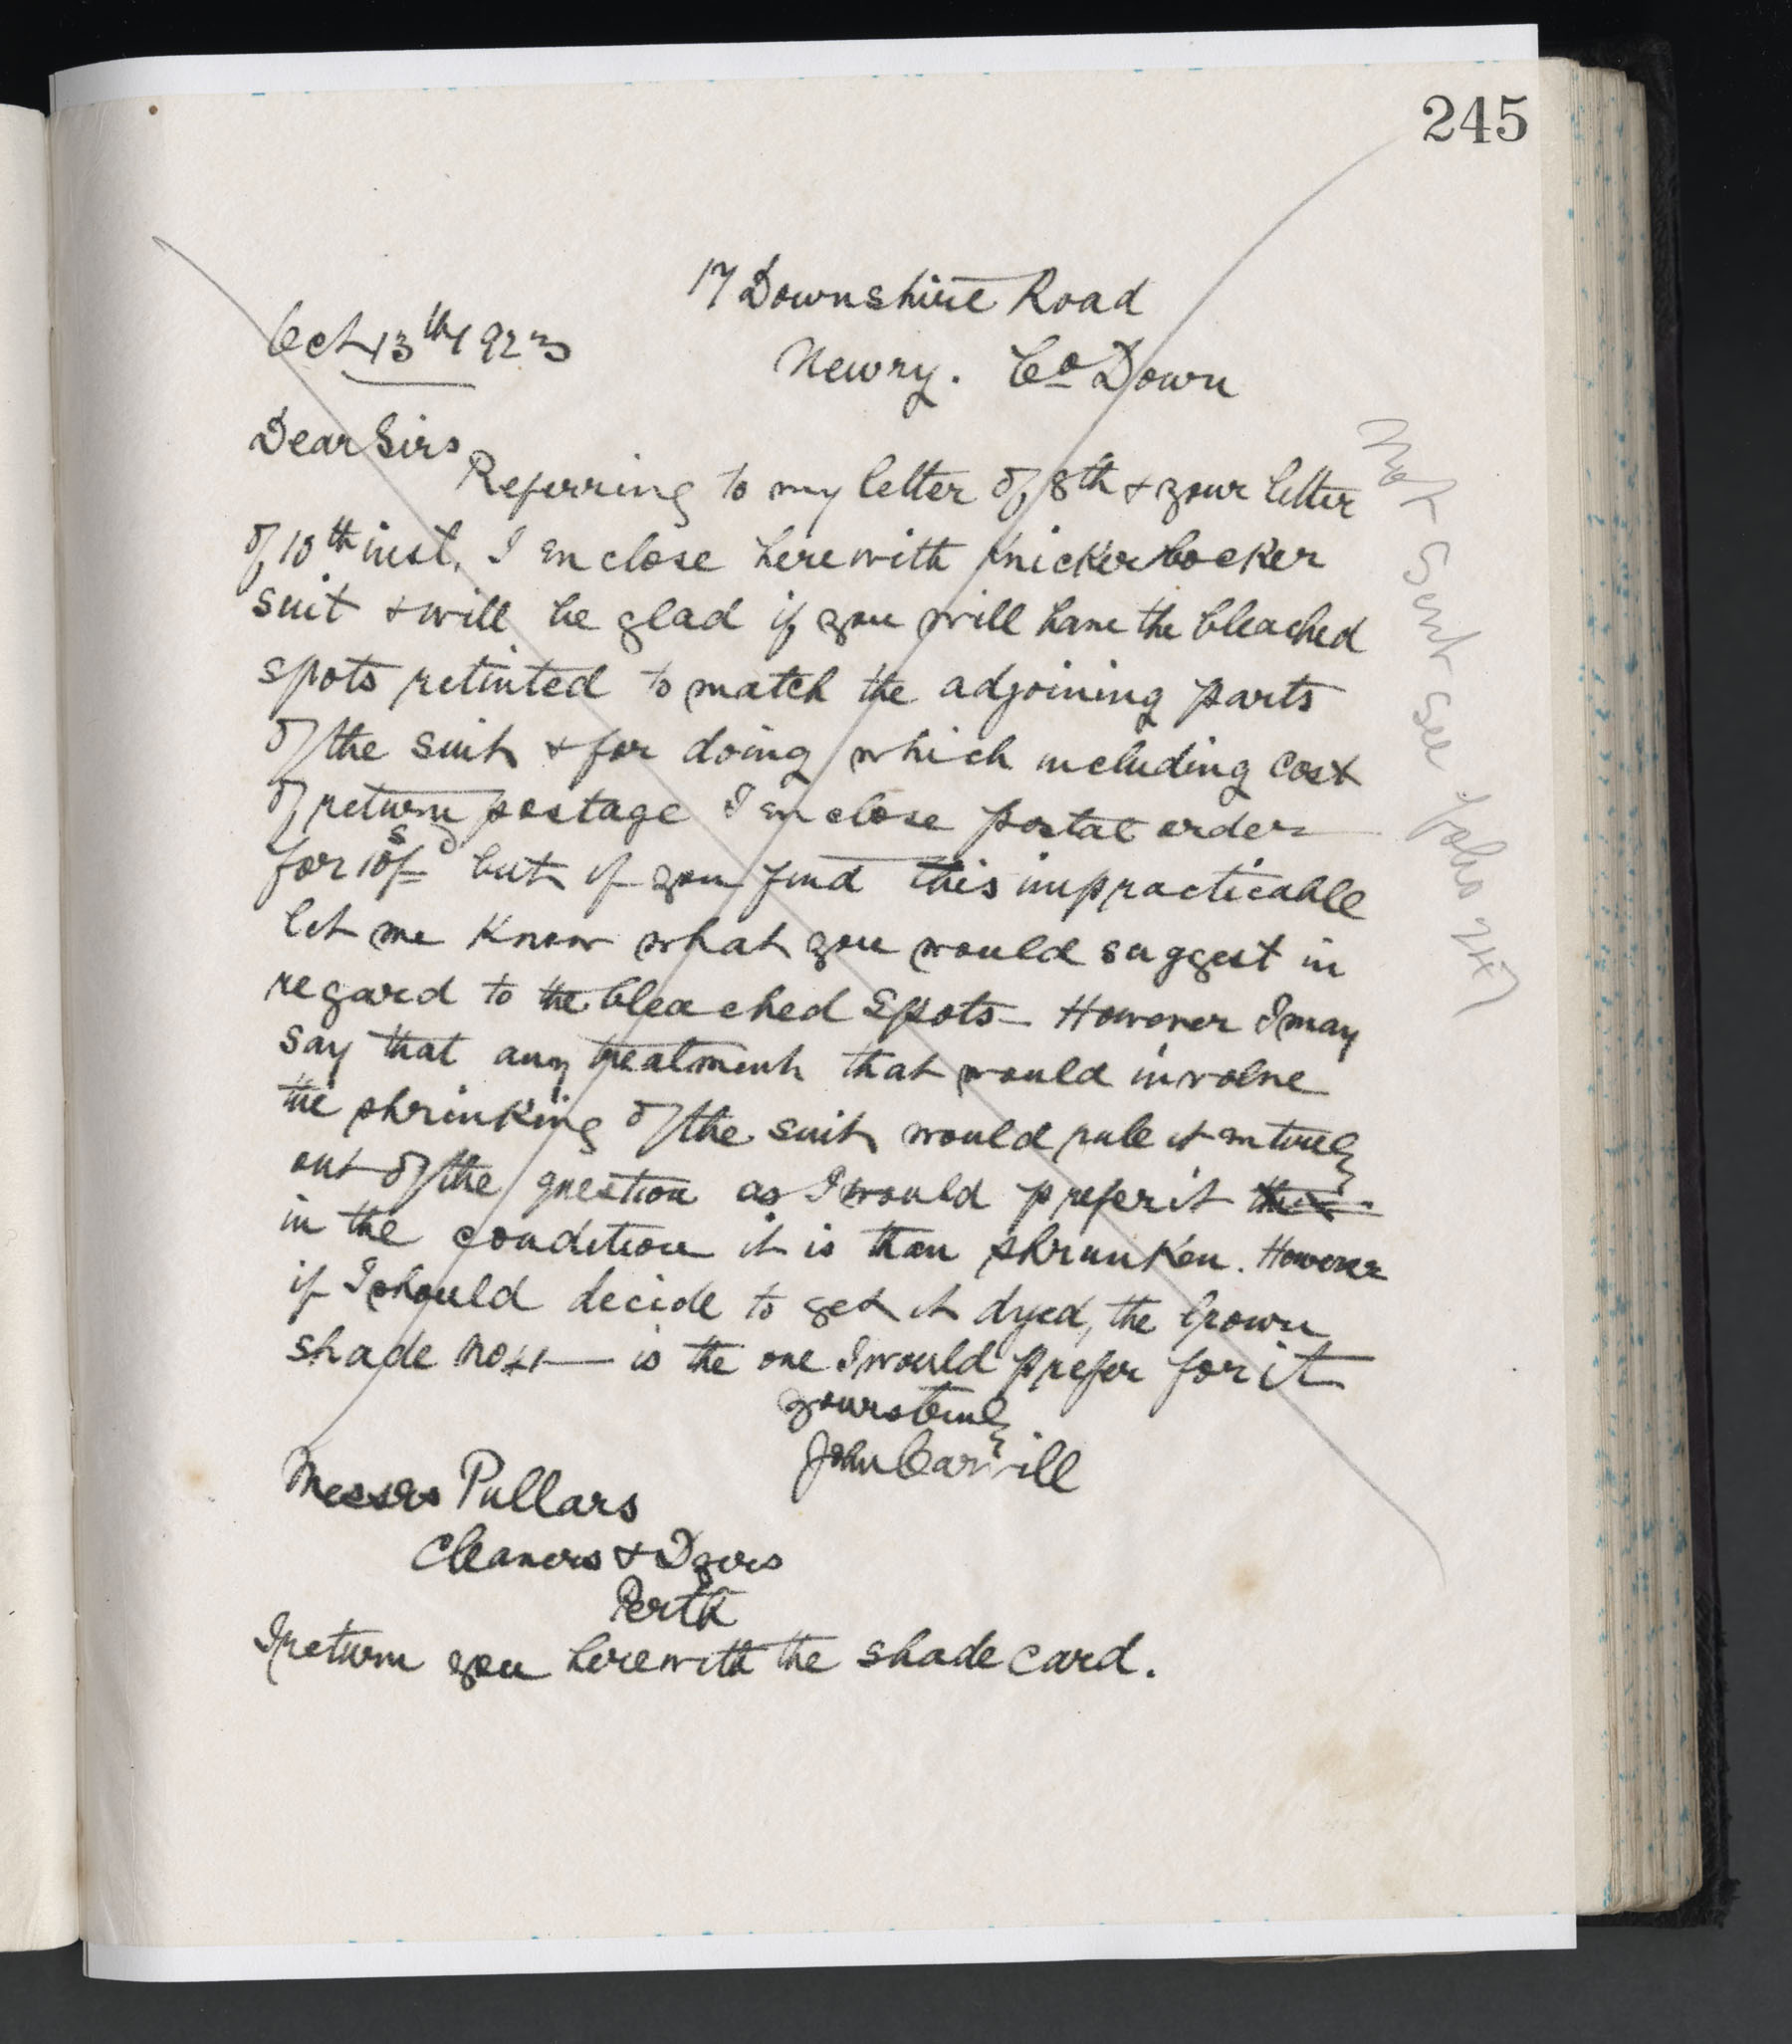 245
17 Downshire Road
Oct 13th 1923
Newry. Co Down
Dear Sirs
Referring to my letter of 8th & your letter
of 10th inst. I enclose herewith Knickerbocker
suit & will be glad if you will have the bleached
spots retinted to match the adjoining parts
of the suit & for doing which including cost
of return postage I enclose postal order
for 10s/- but if you find this impracticable
let me know what you would suggest in
regard to the bleached spots – However I may
say that any treatment that would involve
the shrinking of the suit would rule it entirely
out of the question as I would prefer it
in the condition it is than shrunken. However
if I should decide to get it dyed, the brown
shade is the one I would prefer for it
yours truly
John Carvill
Messrs Pullars
Cleaners & Dyers
Perth
I return you herewith the shade card.
Not Sent See folio 247